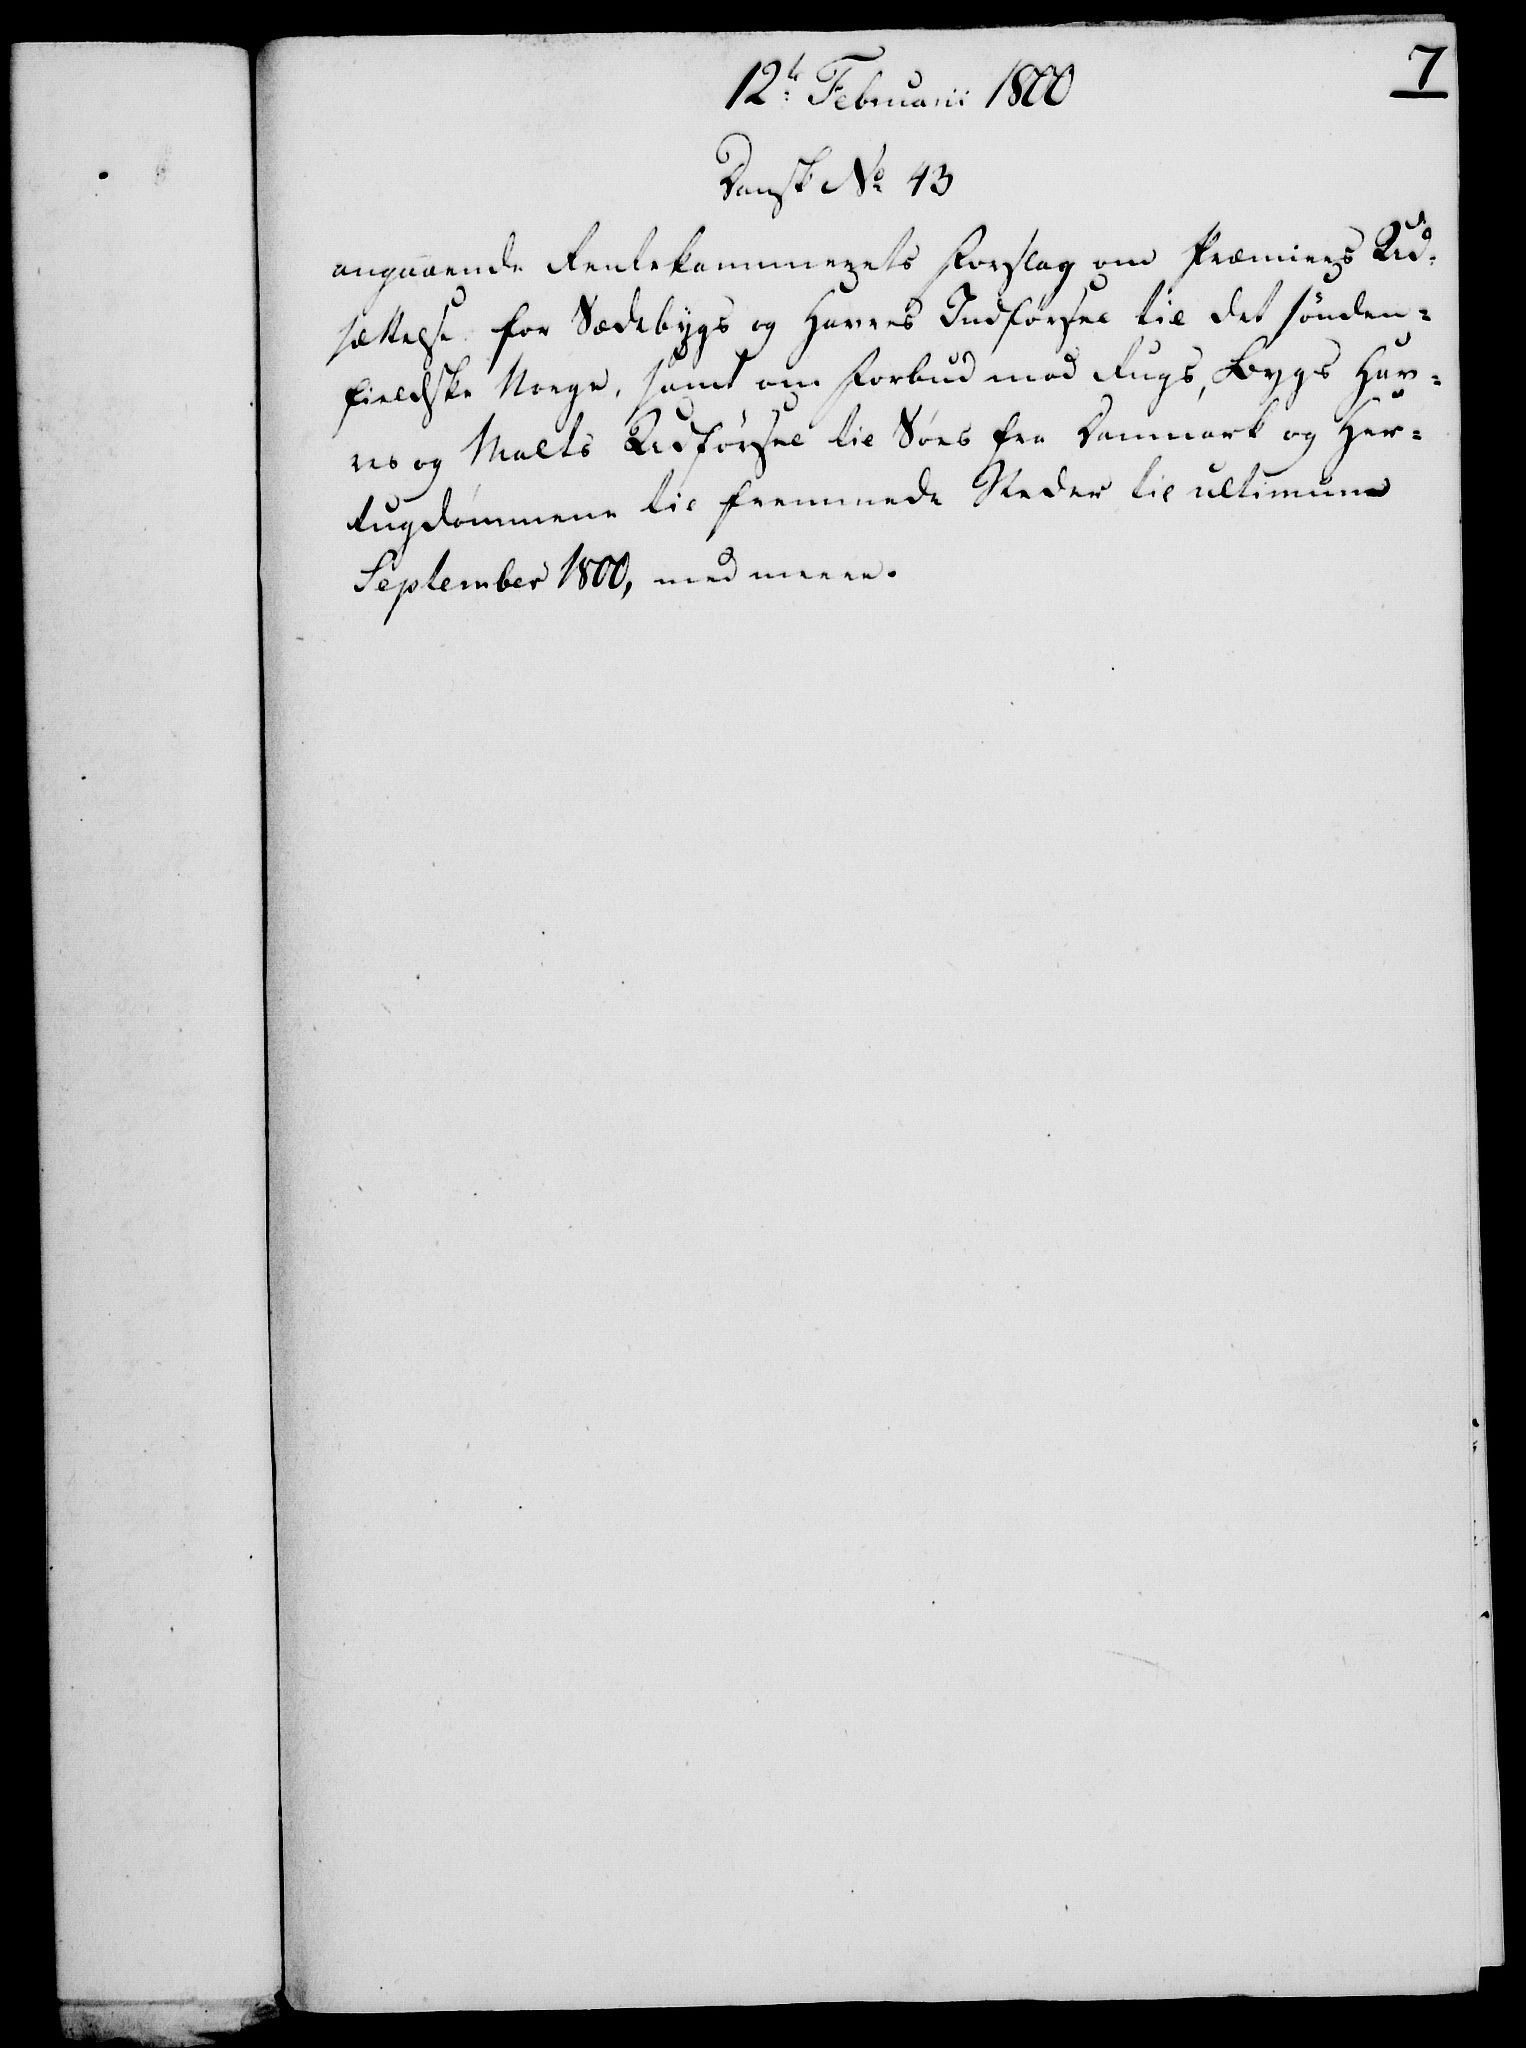 7
12te Februarii 1800
Dansk No 43
angaaende Rentekammerets Forslag om Præmiers Ud-
sættelse for Sædebygs og Havres Indførsel til det sønden-
fieldske Norge, samt om Forbud mod Rugs, Bygs Hav-
res og Malts Udførsel til Søes fra Danmark og Her-
tugdømmene til fremmede Steder til ultimum
September 1800, med meere.